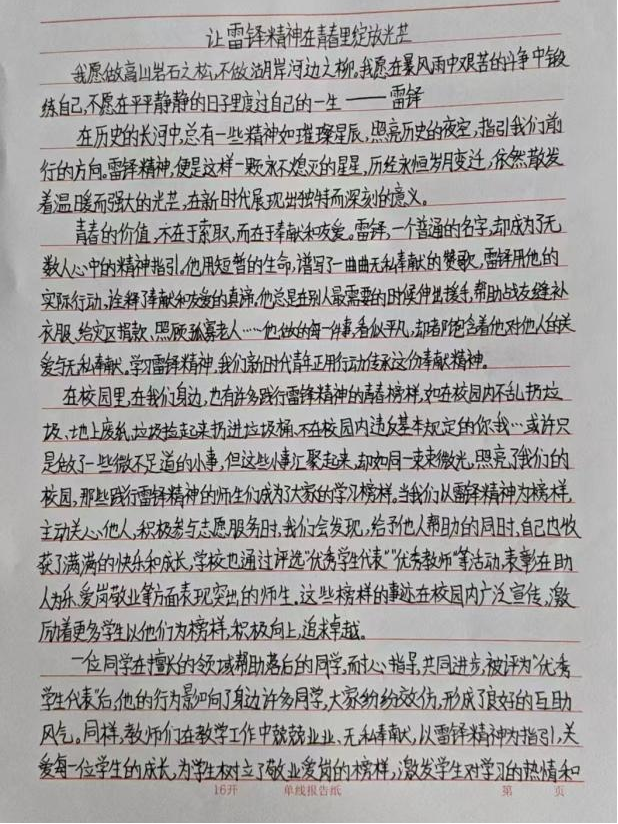 让雷锋精神在青春里绽放光芒
我愿做高山岩石之松,不做湖岸河边之柳。我愿在暴风雨中艰苦的斗争中锻
练自己,不愿在平平静静的日子里度过自己的一生 —— 雷锋
在历史的长河中,总有一些精神如璀璨星辰,照亮历史的夜空,指引我们前
行的方向。雷锋精神,便是这样一颗永不熄灭的星星,历经永恒岁月变迁,依然散发
着温暖而强大的光芒,在新时代展现出独特而深刻的意义。
青春的价值,不在于索取,而在于奉献和友爱。雷锋,一个普通的名字,却成为了无
数人心中的精神指引。他用短暂的生命,谱写了一曲曲无私奉献的赞歌,雷锋用他的
实际行动,诠释了奉献和友爱的真谛。他总是在别人最需要的时候伸出援手,帮助战友缝补
衣服、给灾区捐款、照顾孤寡老人……他做的每一件事,看似平凡,却都饱含着他对他人的关
爱与无私奉献。学习雷锋精神,我们新时代青年正用行动传承这份奉献精神。
在校园里,在我们身边,也有许多践行雷锋精神的青春榜样,如在校园内不乱扔垃
圾、地上废纸,垃圾捡起来扔进垃圾桶、不在校园内违反基本规定的你我…或许只
是做了一些微不足道的小事,但这些小事汇聚起来,却如同一束束微光,照亮了我们的
校园,那些践行雷锋精神的师生们成为了大家的学习榜样。当我们以雷锋精神为榜样,
主动关心他人,积极参与志愿服务时,我们会发现,给予他人帮助的同时,自己也收
获了满满的快乐和成长,学校也通过评选"优秀学生代表""优秀教师"等活动,表彰在助
人为乐、爱岗敬业等方面表现突出的师生。这些榜样的事迹在校园内广泛宣传,激
励着更多学生以他们为榜样,积极向上,追求卓越。
一位同学在擅长的领域帮助落后的同学,耐心指导,共同进步,被评为"优秀
学生代表"后,他的行为影响了身边许多同学,大家纷纷效仿,形成了良好的互助
风气。同样,教师们在教学工作中兢兢业业、无私奉献,以雷锋精神为指引,关
爱每一位学生的成长,为学生树立了敬业爱岗的榜样,激发学生对学习的热情和
16开 单线报告纸 第 页